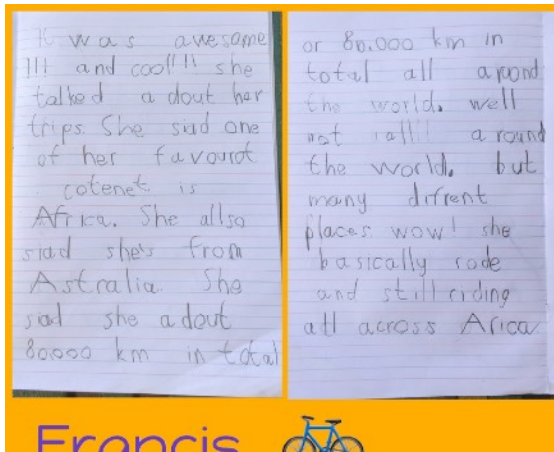 It was awesome
!!! and cool!!! she
talked a dout her
trips. She siad one
of her favourot
cotenet is
Africa. She allso
siad she's from
Astralia. She
siad she adout
80,000 km in total
or 80.000 km in
total all around
the world. well
not all! around
the world. but
many difrent
places wow! she
basically rode
and still riding
atl across Africa
Francis